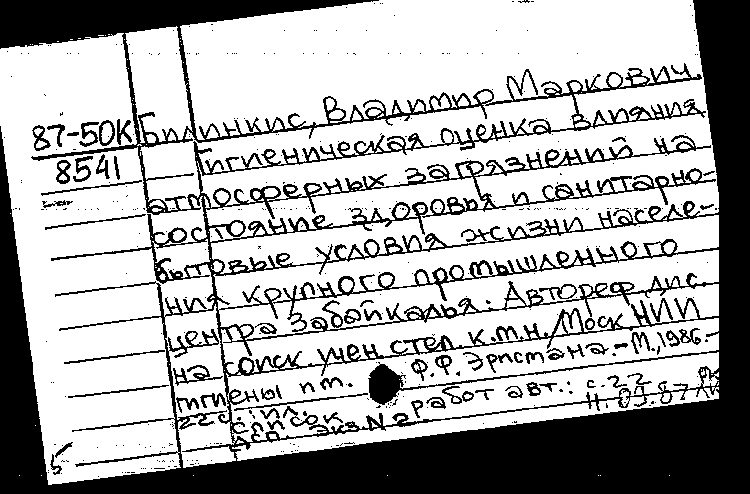 87-50К Билинкис, Владимир Маркович.
8541
Гигиеническая оценка влияния
атмосферных загрязнений на
состояние здоровья и санитарно-
бытовые условия жизни населе-
ния крупного промышленного
центра Забайкалья: Автореф. дис.
на соиск. учен. степ. к.м.н. / Моск. НИИ
гигиены им. Ф.Ф. Эрисмана. - М., 1986. -
22 с.: ил.
Список работ авт.: с. 22
Дсп. Экз. N 2. 11.03.87
5